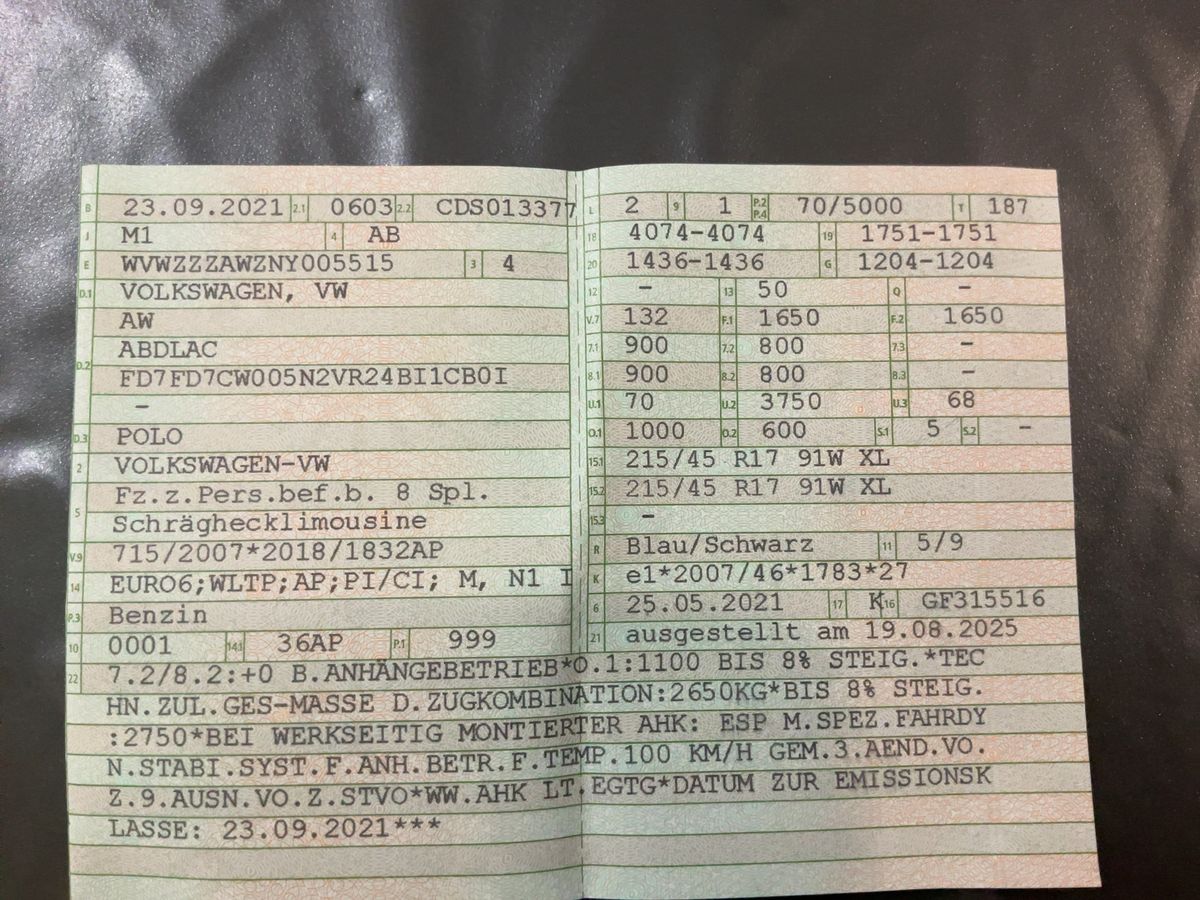 B 23.09.2021 2.1 0603 2.2 CDS013377
J M1 4 AB
E WVWZZZAWZNY005515 3 4
D.1 VOLKSWAGEN, VW
AW
D.2 ABDLAC
FD7FD7CW005N2VR24BI1CB0I
-
D.3 POLO
2 VOLKSWAGEN-VW
5 Fz.z.Pers.bef.b. 8 Spl.
Schräghecklimousine
V.9 715/2007*2018/1832AP
14 EURO6;WLTP;AP;PI/CI; M, N1 I
P.3 Benzin
10 0001 14.1 36AP P.1 999
L 2 9 1 P.2 P.4 70/5000 T 187
18 4074-4074 19 1751-1751
20 1436-1436 G 1204-1204
12 - 13 50 Q -
V.7 132 F.1 1650 F.2 1650
7.1 900 7.2 800 7.3 -
8.1 900 8.2 800 8.3 -
U.1 70 U.2 3750 U.3 68
O.1 1000 O.2 600 S.1 5 S.2 -
15.1 215/45 R17 91W XL
15.2 215/45 R17 91W XL
15.3 -
R Blau/Schwarz 11 5/9
K e1*2007/46*1783*27
6 25.05.2021 17 K 16 GF315516
21 ausgestellt am 19.08.2025
22 7.2/8.2:+0 B.ANHÄNGEBETRIEB*O.1:1100 BIS 8% STEIG.*TEC
HN.ZUL.GES-MASSE D.ZUGKOMBINATION:2650KG*BIS 8% STEIG.
:2750*BEI WERKSEITIG MONTIERTER AHK: ESP M.SPEZ.FAHRDY
N.STABI.SYST.F.ANH.BETR.F.TEMP.100 KM/H GEM.3.AEND.VO.
Z.9.AUSN.VO.Z.STVO*WW.AHK LT.EGTG*DATUM ZUR EMISSIONSK
LASSE: 23.09.2021***